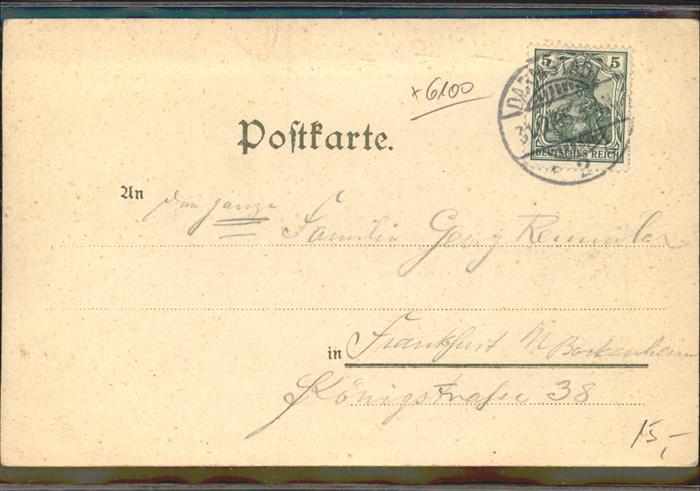 ×6100
5 5
DEUTSCHES REICH
DARMSTADT
2
Postkarte.
An die ganze Familie Georg
in Frankfurt M Bockenheim
Königstraße 38
15,-